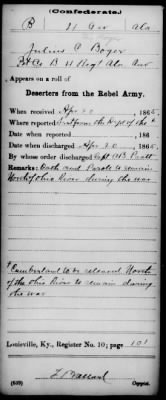 (Confederate.)
B 11 Cav Ala
Julius C Boger
Pvt Co B 11 Regt Ala Cav
Appears on a roll of
Deserters from the Rebel Army.
When received Apr 20, 1865.
Where reported from the Dept of the *
Date when reported , 186 .
Date when discharged Apr 20, 1865.
By whose order discharged Capt
Remarks: Oath and Parole to remain
North of Ohio River during the war
* Cumberland to be released North
of the Ohio River to remain during
the war
Louisville, Ky., Register No. 10; page 101
(639) Copyist.